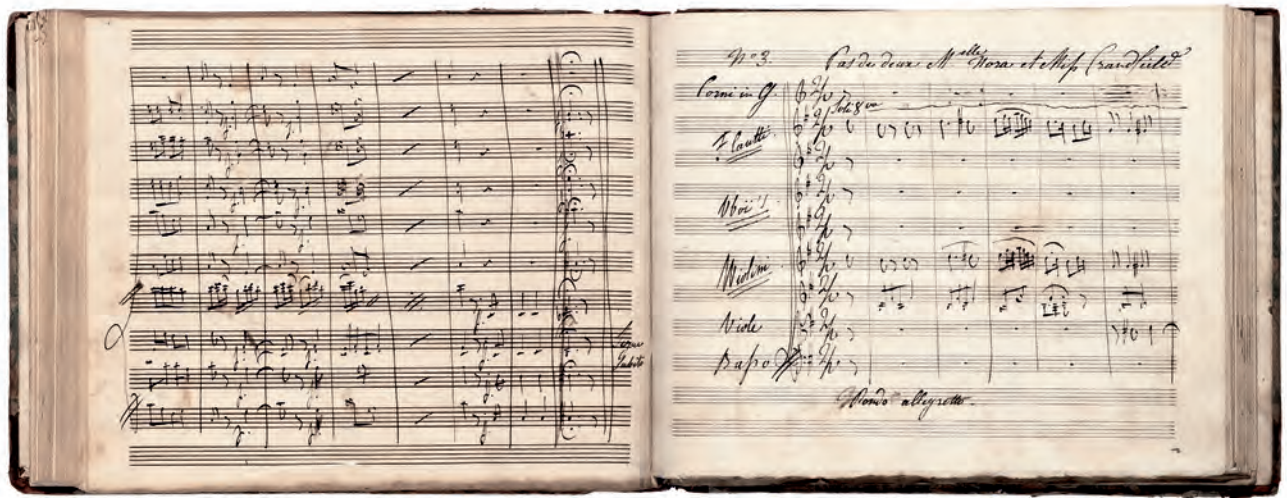 Segue
Subito
No 3. Pas de deux Melle Nora et Miss Crandfield
Corni in G.
Soli 8va
Flautti
Oboi
Violini
Viole
Basso
Rondo allegretto.